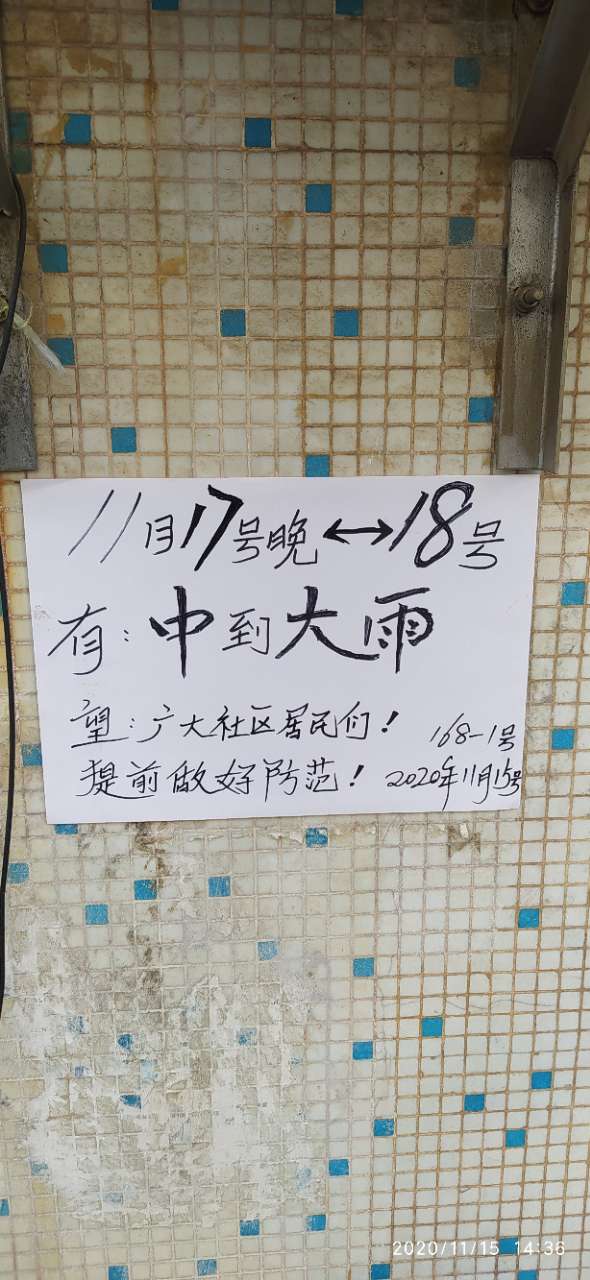 11月17号晚↔18号
有:中到大雨
望:广大社区居民们!
提前做好防范!
168-1号
2020年11月15号
2020/11/15 14:36